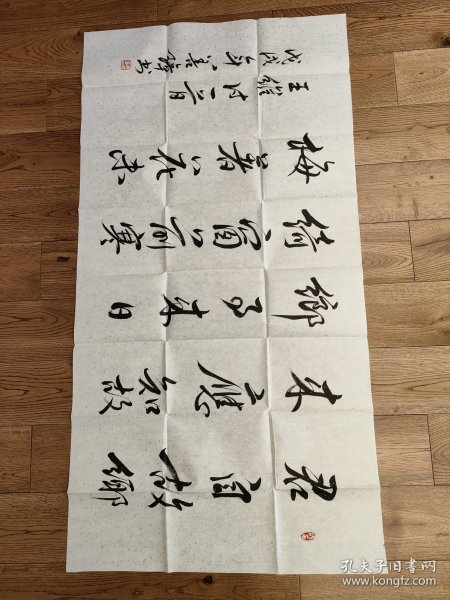 君自故鄉
来應知故
鄉事来日
綺窗前寒
梅著花未
王維诗一首
戊戌年 書
孔夫子旧书网
www.kongfz.com